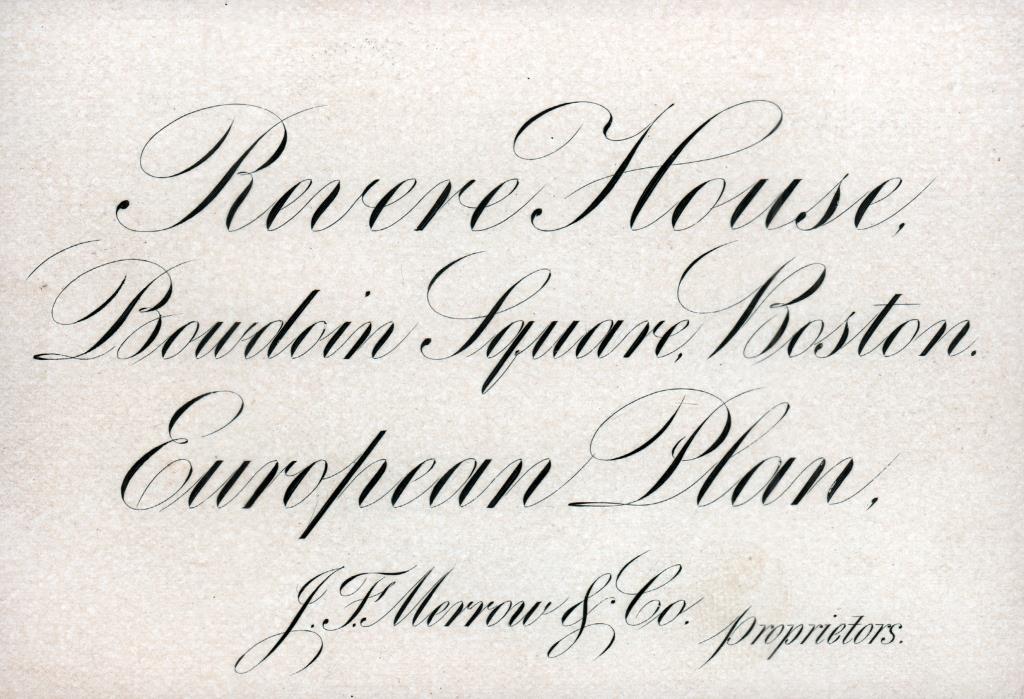 Revere House,
Bowdoin Square, Boston.
European Plan,
J. F. Merrow & Co. Proprietors.